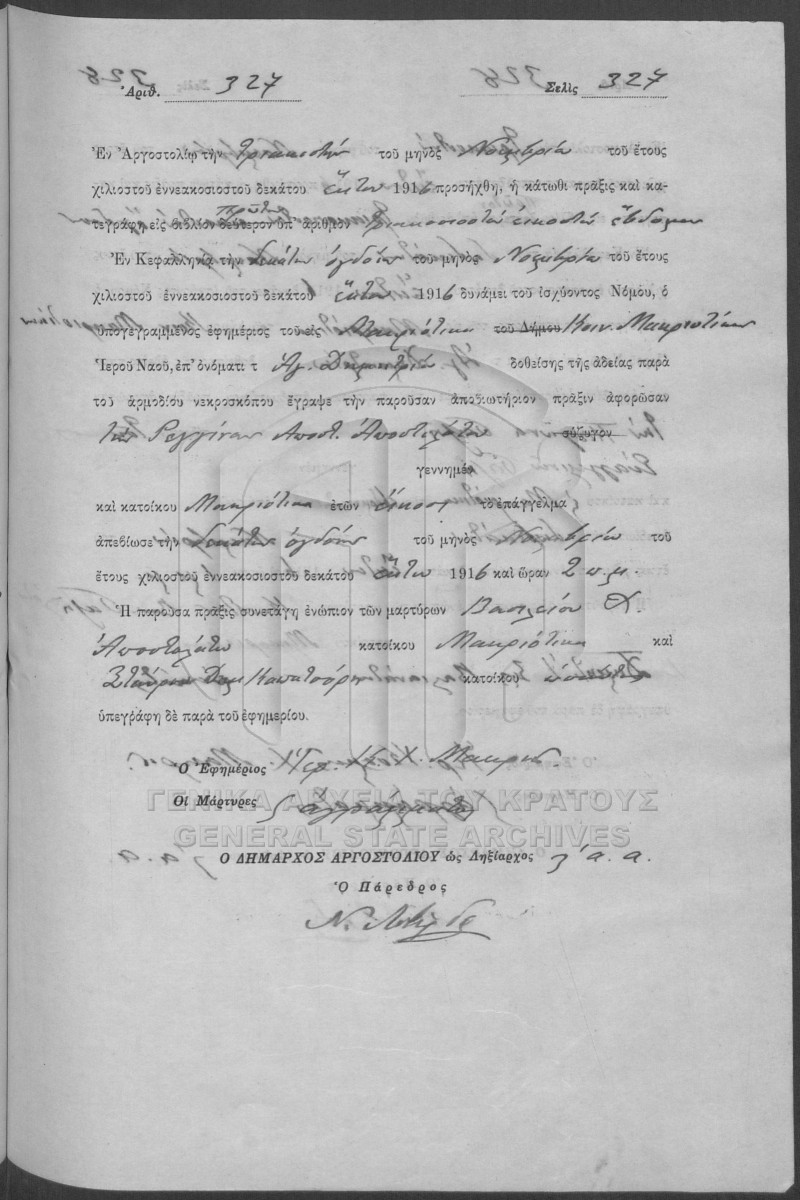 Ἀριθ. 327 Σελὶς 327
Ἐν Ἀργοστολίῳ τὴν τριακοστὴν τοῦ μηνὸς Νοεμβρίου τοῦ ἔτους
χιλιοστοῦ ἐννεακοσιοστοῦ δεκάτου ἕκτου 1916 προσήχθη, ἡ κάτωθι πρᾶξις καὶ κα-
πρῶτον
τεγράφη εἰς βιβλίον δεύτερον ὑπ' ἀριθμὸν τριακοσιοστὸν εἰκοστὸν ἕβδομον
Ἐν Κεφαλληνίᾳ τὴν δεκάτην ὀγδόην τοῦ μηνὸς Νοεμβρίου τοῦ ἔτους
χιλιοστοῦ ἐννεακοσιοστοῦ δεκάτου ἕκτου 1916 δυνάμει τοῦ ἰσχύοντος Νόμου, ὁ
ὑπογεγραμμένος ἐφημέριος τοῦ εἰς Μακριώτικα τοῦ Δήμου Κοιν. Μακριωτίκων
Ἱεροῦ Ναοῦ, ἐπ' ὀνόματι τ Ἁγ. Δημητρίου δοθείσης τῆς ἀδείας παρὰ
τοῦ ἁρμοδίου νεκροσκόπου ἔγραψε τὴν παροῦσαν ἀποβιωτήριον πρᾶξιν ἀφορῶσαν
τὴν Ρεγγίναν Ἀποστ. Ἀποστολάτου σύζυγον
γεννημέ
καὶ κατοίκου Μακριώτικα ἐτῶν εἴκοσι τὸ ἐπάγγελμα
ἀπεβίωσε τὴν δεκάτην ὀγδόην τοῦ μηνὸς Νοεμβρίου τοῦ
ἔτους χιλιοστοῦ ἐννεακοσιοστοῦ δεκάτου ἕκτου 1916 καὶ ὥραν 2 π.μ.
Ἡ παροῦσα πρᾶξις συνετάγη ἐνώπιον τῶν μαρτύρων Βασιλείου Χ.
Ἀποστολάτου κατοίκου Μακριώτικα καὶ
Σταύρου Δημ. κατοίκου
ὑπεγράφη δὲ παρὰ τοῦ ἐφημερίου.
Ὁ Ἐφημέριος Ἱερ. Χ. Μακρῆς
Οἱ Μάρτυρες (ἀγράμματοι)
ΓΕΝΙΚΑ ΑΡΧΕΙΑ ΤΟΥ ΚΡΑΤΟΥΣ
GENERAL STATE ARCHIVES
Ο ΔΗΜΑΡΧΟΣ ΑΡΓΟΣΤΟΛΙΟΥ ὡς Ληξίαρχος κ' α. α.
Ὁ Πάρεδρος
Ν.